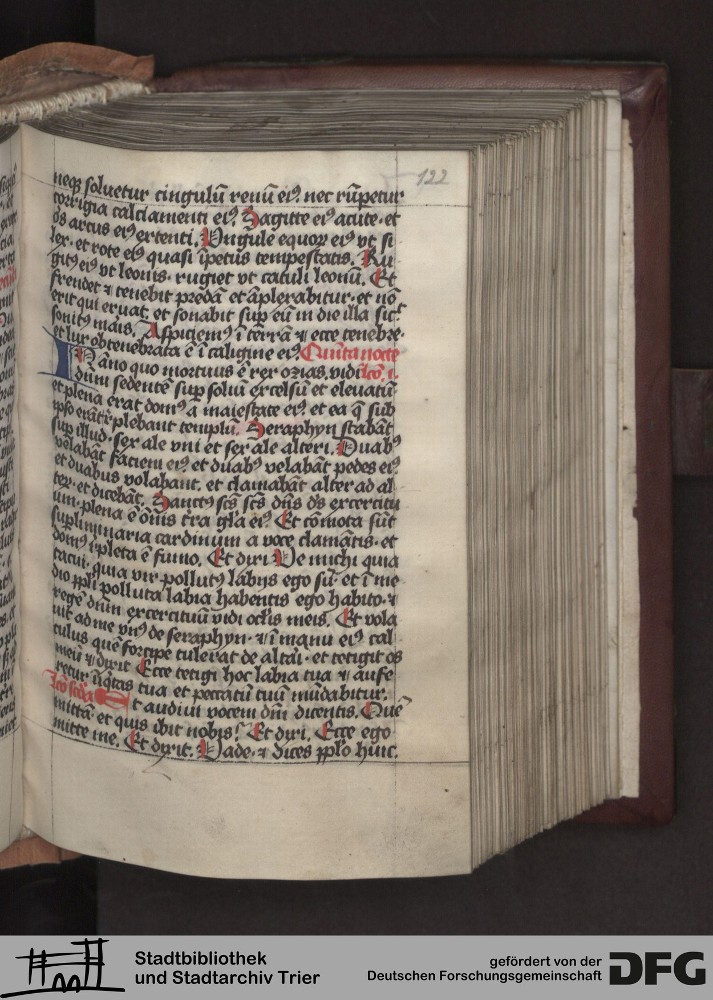 122
neqꝫ soluetur cingulū renū eiꝰ. nec rūpetur
corrigia calciamenti eiꝰ. Sagitte eiꝰ acute. et
ōs arcus eiꝰ extenti. Vngule equoꝝ eiꝰ vt si
lex. et rote eiꝰ quasi īpetus tempestatis. Ru
gitꝰ eiꝰ vt leonis. rugiet vt catuli leonū. Et
frendet ⁊ tenebit predā et āplexabitur. et nō
erit qui eruat. et sonabit sup eū in die illa sic̄
sonitꝰ maris. Aspiciemꝰ ī terrā ⁊ ecce tenebre.
et lux obtenebrata ē ī caligine eiꝰ. Quīta nocte
IN āno quo mortuus ē rex ozias. vidi lcō. i.
dūm sedente sup soliū excelsū et eleuatū
et plena erat domꝰ a maiestate eiꝰ. et ea q̄ sub
ipso erāt replebant templū. Seraphyn stabāt
sup illud. sex ale vni et sex ale alteri. Duabꝰ
velabāt faciem eiꝰ. et duabꝰ velabāt pedes eiꝰ
et duabus volabant. et clamabāt alter ad al
teꝝ. et dicebāt. Sanctꝰ scs̄ scs̄ dn̄s ds̄ exercitu
um. plena ē ōmis t̄ra gl̄a eiꝰ. Et cōmota sūt
supliminaria cardinum a voce clamātis. et
domꝰ īpleta ē fumo. Et dixi. Ve michi quia
tacui. quia vir pollutꝰ labijs ego sū. et ī me
dio ppl̄i polluta labia habentis ego habito. ⁊
regē dūm exercituū vidi oclis meis. Et vola
uit ad me vnꝰ de seraphyn. ⁊ ī manu eiꝰ cal
culus quē forcipe tulerat de altari. et tetigit os
meū ⁊ dixit Ecce tetigi hoc labia tua ⁊ aufe
retur īiq̄tas tua et peccatū tuū mūdabitur.
lcō scd̄a Et audiui vocem dn̄i dicentis. Quē
mittā. et quis ibit nobis? Et dixi. Ecce ego
mitte me. Et dixit. Vade. ⁊ dices ppl̄o huic.
Stadtbibliothek
und Stadtarchiv Trier
gefördert von der
Deutschen Forschungsgemeinschaft
DFG